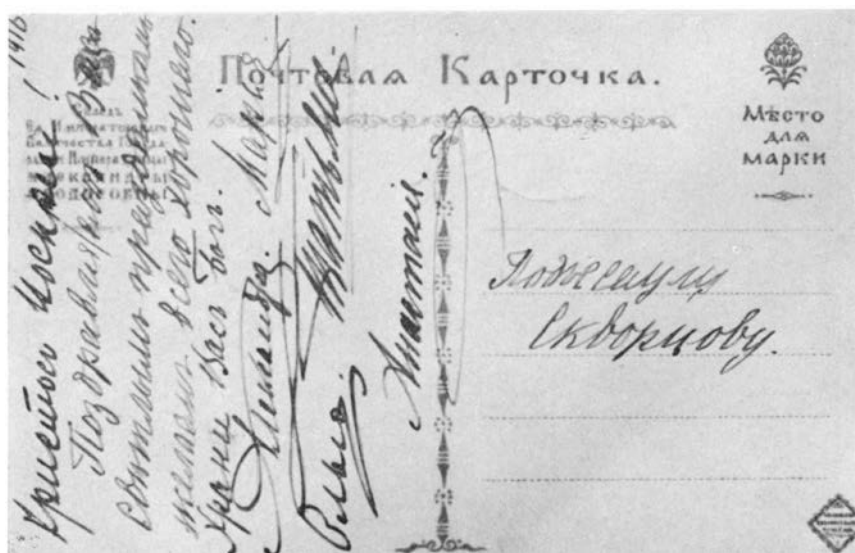 Почтовая Карточка.
Мѣсто
для
марки
Складъ
Ея Императорскаго
Величества Госуда-
рыни Императрицы
Александры
Ѳеодоровны
1916
Христосъ Воскресе!
Поздравляю Васъ
свѣтлымъ праздникомъ
желаю всего хорошаго.
Храни Васъ Богъ.
Александра. Марія
Ольга. Татьяна
Анастасія.
Подъесаулу
Скворцову.